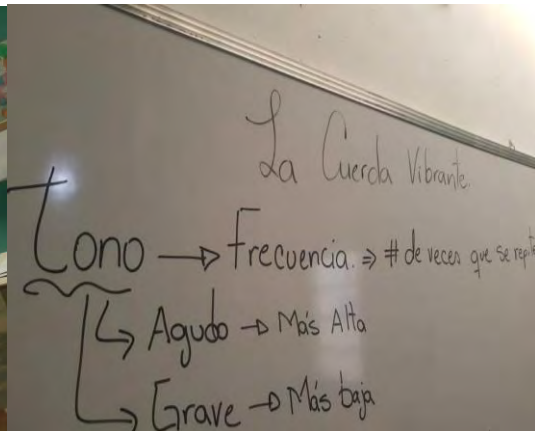 La Cuerda Vibrante.
Tono → Frecuencia. ⇒ # de veces que se repite
↳ Agudo → Más Alta
↳ Grave → Más baja